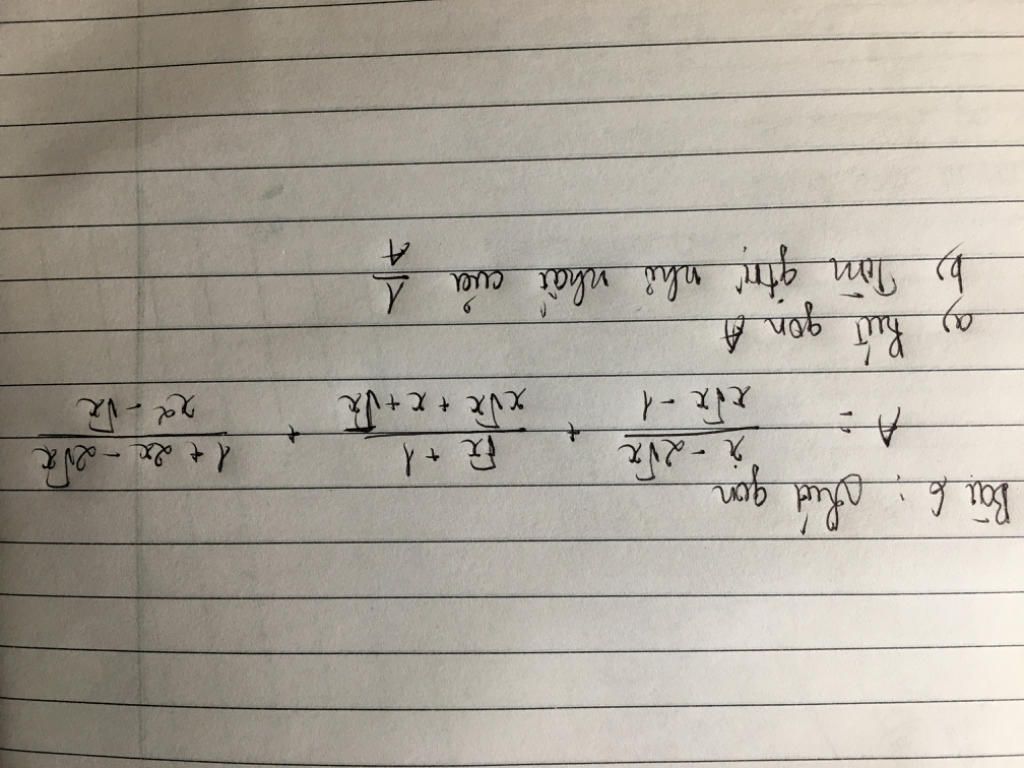 Bài 6 : Rút gọn
A = \frac{x - 2\sqrt{x}}{x\sqrt{x} - 1} + \frac{\sqrt{x} + 1}{x\sqrt{x} + x + \sqrt{x}} + \frac{1 + 2x - 2\sqrt{x}}{x^2 - \sqrt{x}}
a) Rút gọn A
b) Tìm gtrị nhỏ nhất của \frac{1}{A}